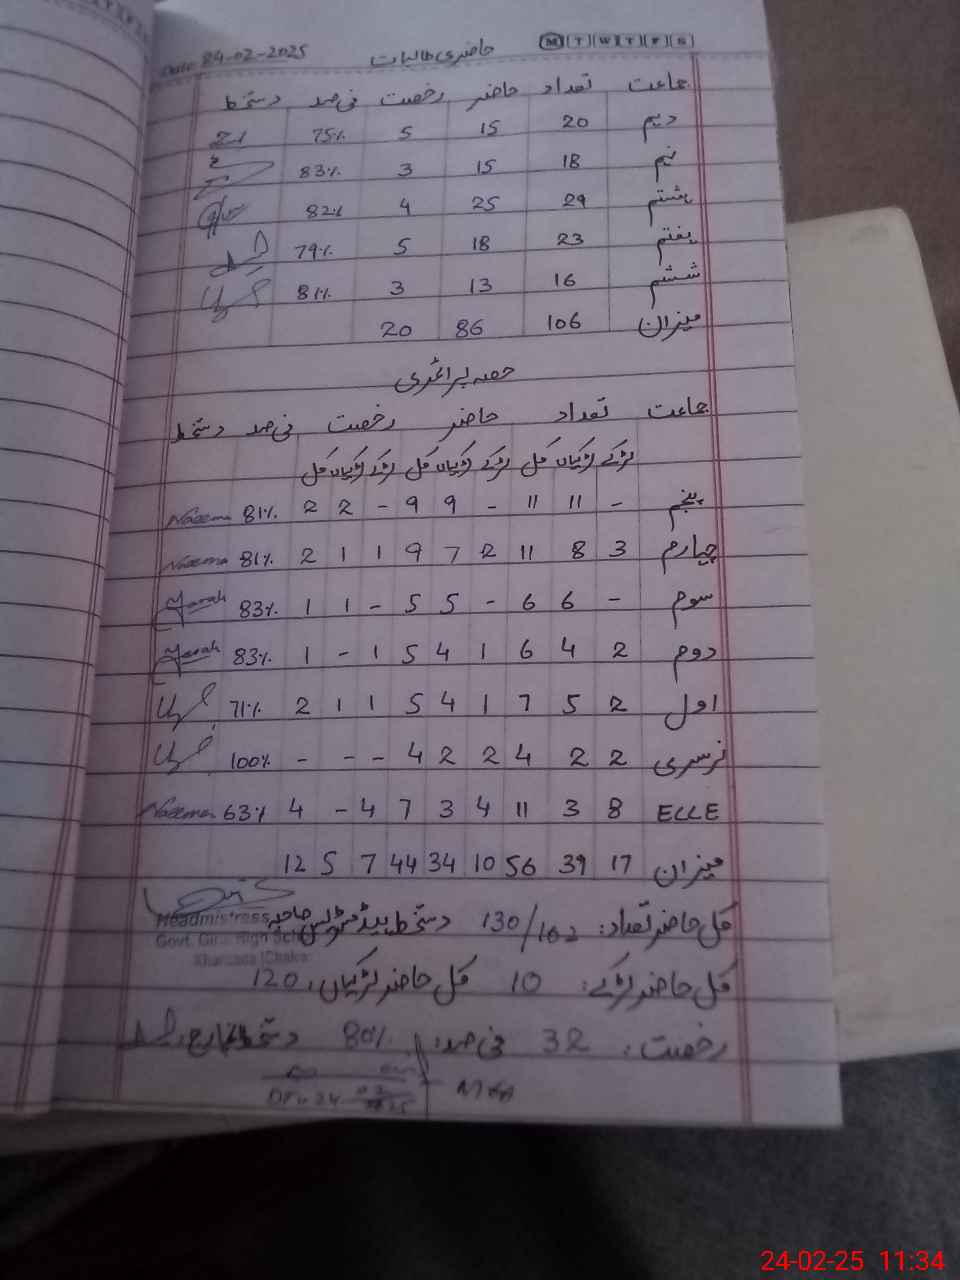 Date 24-02-2025 حاضری طالبات M T W T F S
جماعت تعداد حاضر رخصت فی صد دستخط
دہم 20 15 5 75%
نہم 18 15 3 83%
ہشتم 29 25 4 82%
ہفتم 23 18 5 79%
ششم 16 13 3 81%
میزان 106 86 20
حصہ پرائمری
جماعت تعداد حاضر رخصت فی صد دستخط
لڑکے لڑکیاں کل لڑکے لڑکیاں کل لڑکے لڑکیاں کل
پنجم - 11 11 - 9 9 - 2 2 81% Naeema
چہارم 3 8 11 2 7 9 1 1 2 81% Naeema
سوم - 6 6 - 5 5 - 1 1 83%
دوم 2 4 6 1 4 5 1 - 1 83%
اول 2 5 7 1 4 5 1 1 2 71%
نرسری 2 2 4 2 2 4 - - - 100%
ECCE 8 3 11 4 3 7 4 - 4 63% Naeema
میزان 17 39 56 10 34 44 7 5 12
کل حاضر تعداد: 130/162 دستخط ہیڈ مسٹریس صاحبہ
Headmistress
Govt. Girls High School
کل حاضر لڑکے: 10 کل حاضر لڑکیاں: 120
رخصت: 32 فی صد: 80% دستخط انچارج
24-02-25 11:34